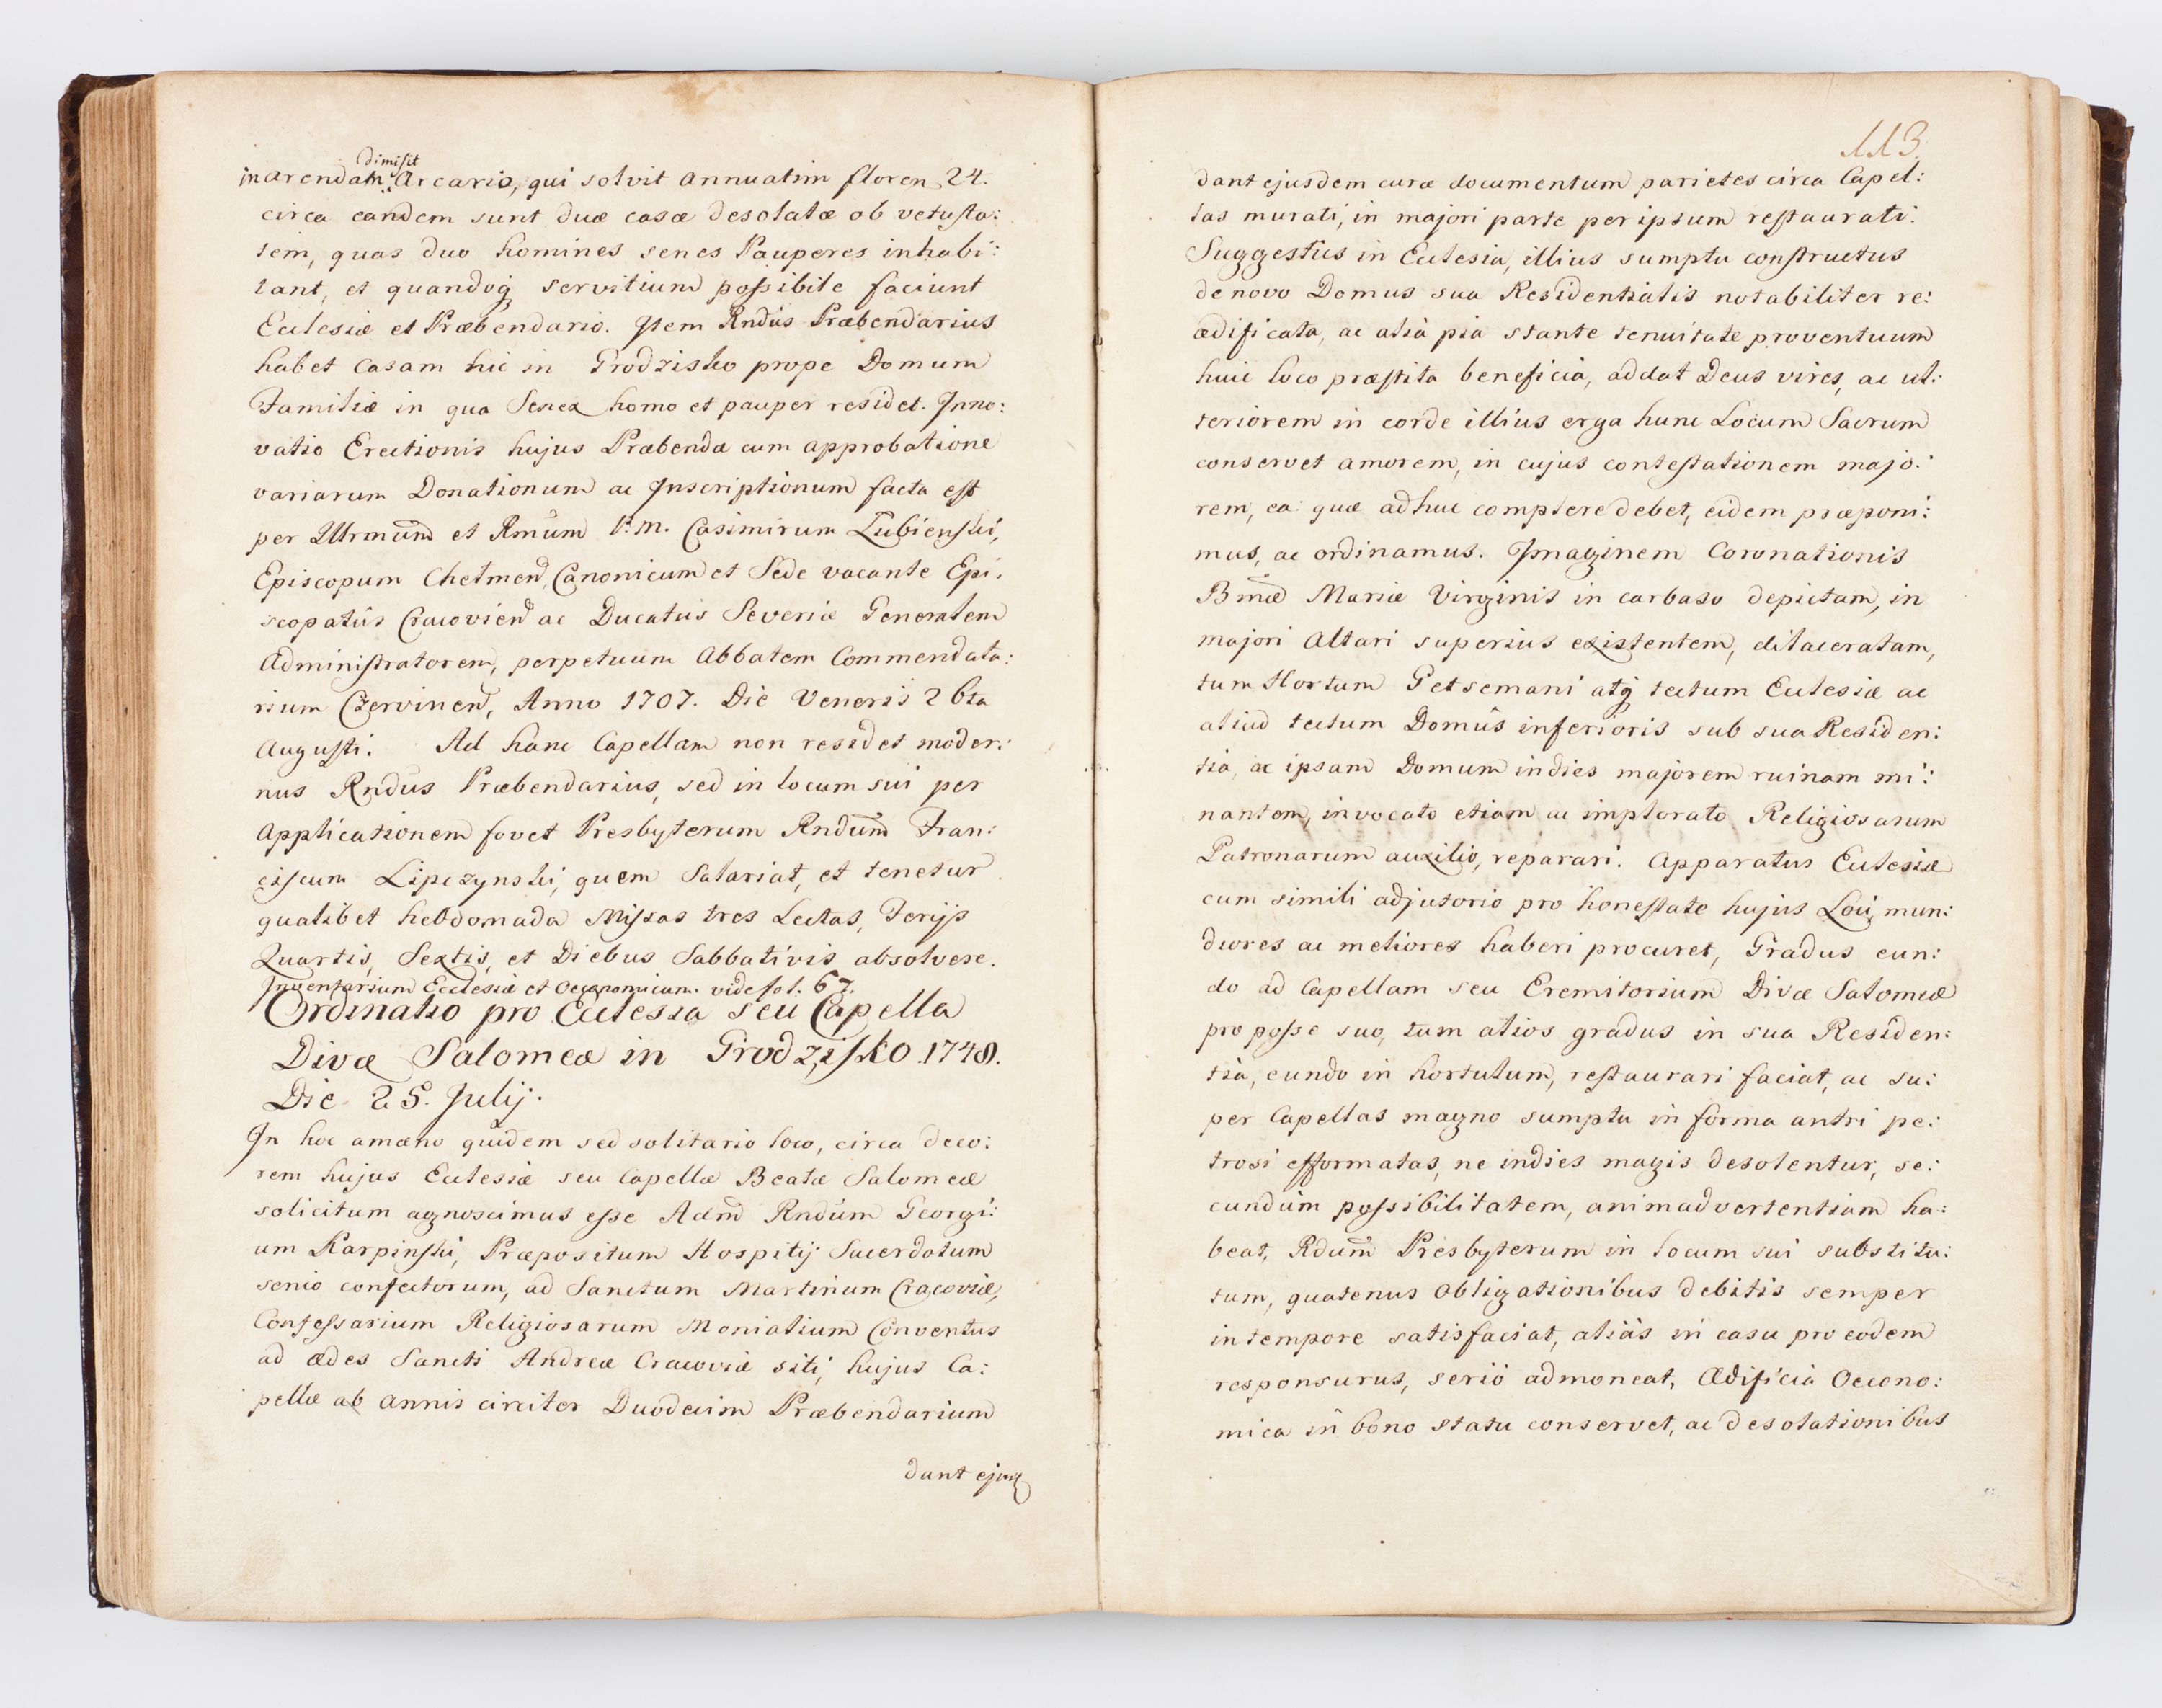 dimisit
in arendam Arcario, qui solvit annuatim floren. 24.
circa eandem sunt duæ casæ desolatæ ob vetusta:
tem, quas duo homines senes Pauperes inhabi:
tant, et quandoq servitium possibile faciunt
Ecclesiæ et Præbendario. Item Rndus Præbendarius
habet Casam hic in Grodzisko prope Domum
Familiæ in qua Senex homo et pauper residet. Inno:
vatio Erectionis hujus Præbendæ cum approbatione
variarum Donationum ac Inscriptionum facta est
per Illrmum et Rmum P. M. Casimirum Łubienski,
Episcopum Chelmen, Canonicum et Sede vacante Epi:
scopatûs Cracovien ac Ducatûs Severiæ Generalem
Administratorem, perpetuum Abbatem Commendata:
rium Czervinen, Anno 1707. Die Veneris 26ta
Augusti. Ad hanc Capellam non residet moder:
nus Rndus Præbendarius, sed in locum sui per
Applicationem fovet Presbyterum Rndum Fran:
ciscum Lipczynski, quem Salariat, et tenetur
qualibet hebdomada Missas tres Lectas, Ferijs
Quartis, Sextis, et Diebus Sabbativis absolvere.
Inventarium Ecclesiæ et Oeconomicum vide fol. 67.
Ordinatio pro Ecclesia seu Capella
Divæ Salomeæ in Grodzisko. 1748.
Die 25. Julij.
In hoc amæno quidem sed solitario loco, circa deco:
rem hujus Ecclesiæ seu Capellæ Beatæ Salomeæ
solicitum agnoscimus esse Adm Rndum Georgi:
um Karpinski, Præpositum Hospitij Sacerdotum
senio confectorum, ad Sanctum Martinum Cracoviæ,
Confessarium Religiosarum Monialium Conventus
ad ædes Sancti Andreæ Cracoviæ siti, hujus Ca:
pellæ ab annis circiter Duodecim Præbendarium
dant ejusq
113.
dant ejusdem curæ documentum parietes circa Capel:
las murati, in majori parte per ipsum restaurati.
Suggestus in Ecclesia, illius sumptu constructus
de novo Domus sua Residentialis notabiliter re:
ædificata, ac alia pia stante tenuitate proventuum
huic loco præstita beneficia, addat Deus vires, ac ul:
teriorem in corde illius erga hunc Locum Sacrum
conservet amorem, in cujus contestationem majo:
rem, ea quæ adhuc complere debet, eidem præponi:
mus, ac ordinamus. Imaginem Coronationis
Bmæ Mariæ Virginis in carbaso depictam, in
majori Altari superius existentem, dilaceratam,
tum Hortum Getsemani atq tectum Ecclesiæ ac
aliud tectum Domûs inferioris sub sua Residen:
tia, ac ipsam Domum indies majorem ruinam mi:
nantem, invocato etiam ac implorato Religiosarum
Patronarum auxilio, reparari. Apparatus Ecclesiæ
cum simili adjutorio pro honestate hujus Loci, mun:
diores ac meliores haberi procuret, Gradus eun:
do ad Capellam seu Eremitorium Divæ Salomeæ
pro posse suo, tum alios gradus in sua Residen:
tia, eundo in hortulum, restaurari faciat, ac su:
per Capellas magno sumptu in forma antri pe:
trosi efformatas, ne indies magis desolentur, se:
cundum possibilitatem, animadvertentiam ha:
beat, Rdum Presbyterum in locum sui substitu:
tum, quatenus obligationibus debitis semper
in tempore satisfaciat, alias in casu pro eodem
responsurus, serio admoneat, Ædificia Oecono:
mica in bono statu conservet, ac desolationibus